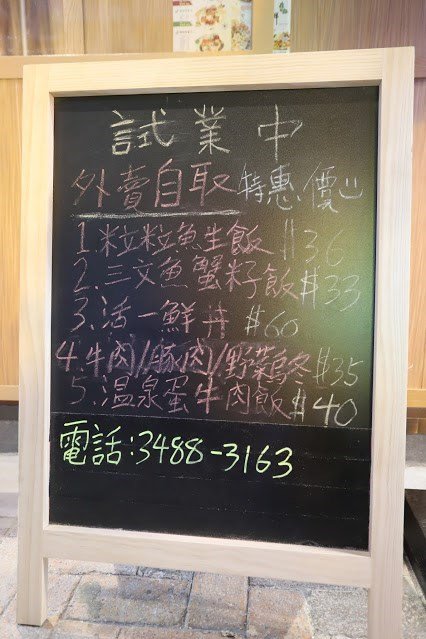 試業中
外賣自取特惠價
1.粒粒魚生飯 $36
2.三文魚蟹籽飯 $33
3.活一鮮丼 $60
4.牛肉/豚肉/野菜烏冬 $35
5.温泉蛋牛肉飯 $40
電話:3488-3163